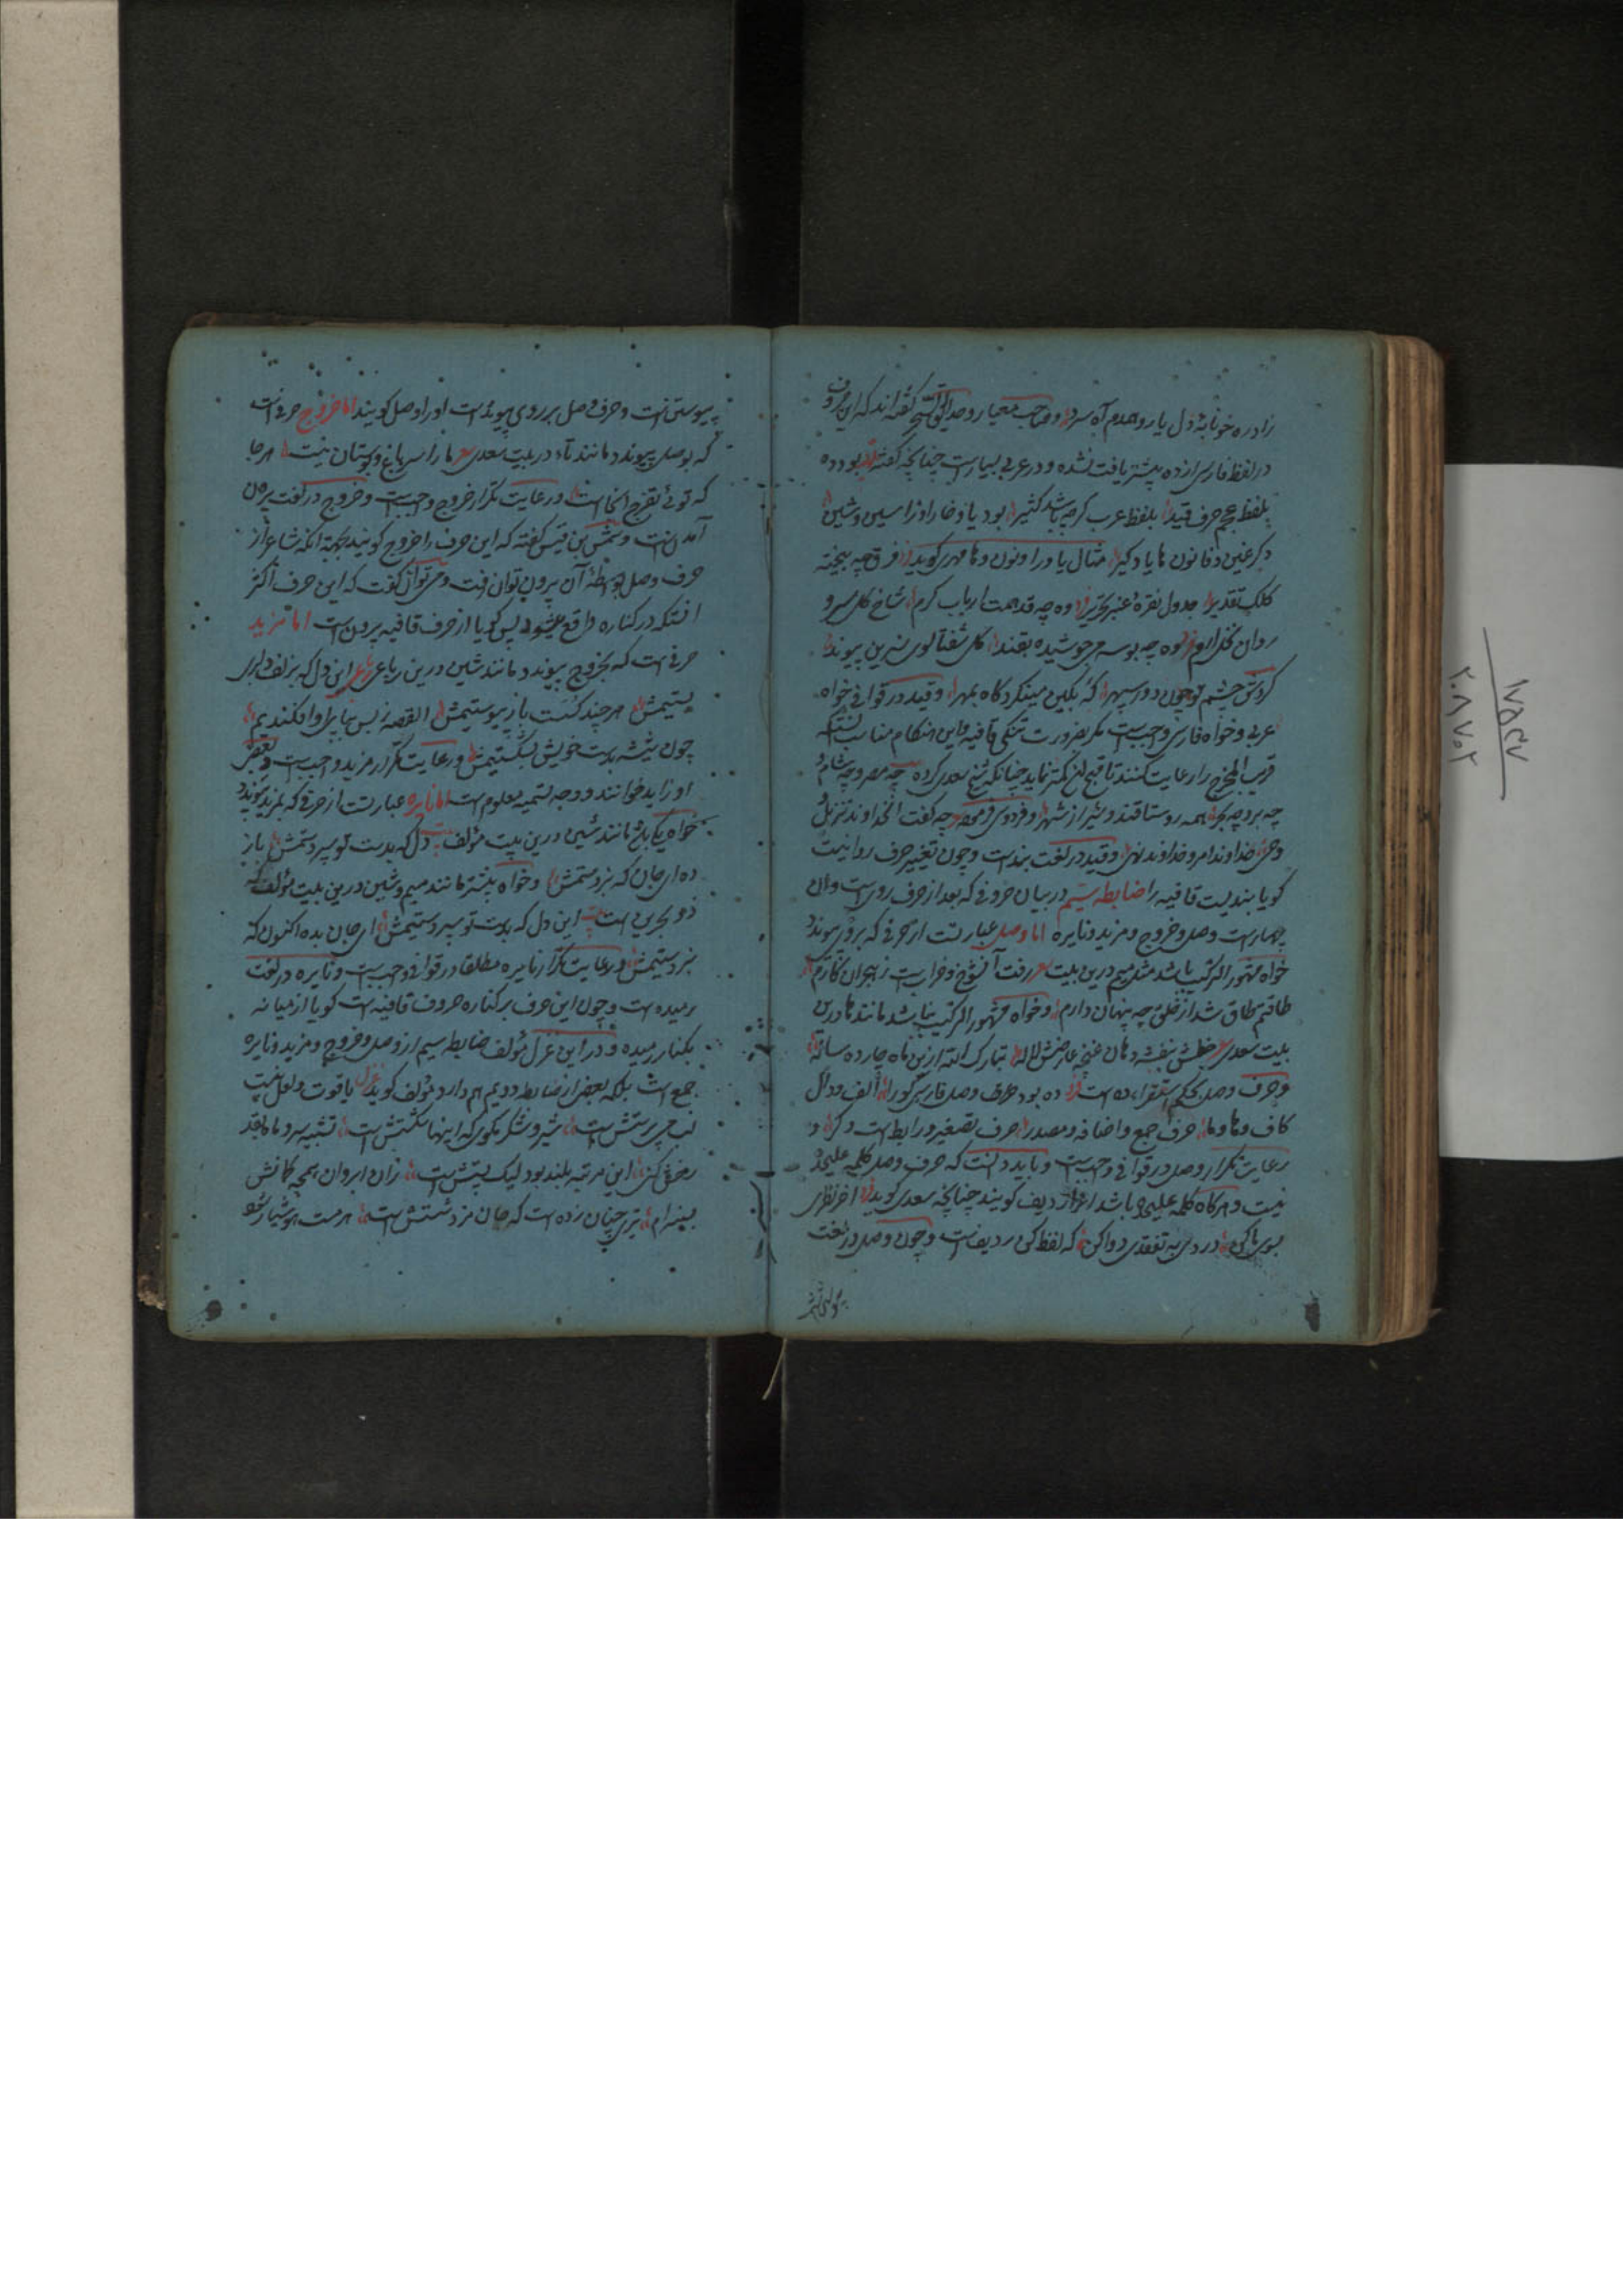 زاد ره خونابهٔ دل یار و همدم آه سرد و صاحب معیار و حدایق السحر گفته‌اند که این حروف
در لفظ فارسی از ده بیشتر یافت نشده و در عربی بسیار است چنانچه گفته بود ده
بلفظ عجم حرف قید بلفظ عرب گرچه باشد کثیر بود با و خا را و زا سین و شین
دگر غین و فا نون ها یاد گیر مثال با و را و نون و ها مهری گوید فرق چه بیخته
کلک تقدیر جدول نقره عنبر تحریر وه چه قد همت ارباب کرم شاخ گل سرو
روان نخل ارم وه چه بوسه جوشیده بقند گل شفتالوی نسرین پیوند
گردش چشم تو چون دور سپهر که بکین مینگرد گاه بمهر و قید در قوافی خواه
عربی و خواه فارسی واجبست مگر بضرورت تنگی قافیه و این هنگام مناسب آنستکه
قریب المخرج را رعایت کنند تا قبح آن کمتر نماید چنانکه شیخ سعدی کرده چه مصر و چه شام و
چه بر و چه بحر همه روستاقند و شیراز شهر و فردوسی چه گفت آنخداوند تنزیل
وحی خداوند امر و خداوند نهی و قید در لغت بند است و چون تغییر حرف روا نیست
گویا بندیست قافیه را ضابطه سیم در بیان حروفی که بعد از حرف روی است و ان
چهار است وصل و خروج و مزید و نایره اما وصل عبارتست از حرفی که بروی پیوندد
خواه مشهور الترکیب باشد مثل میم درین بیت رفت آنشوخ و خرابست ز هجران کارم
طاقتم طاق شد از خلق چه پنهان دارم و خواه مشهور الترکیب نباشد مانند ها درین
بیت سعدی خطش بنفشه دهان غنچه عارضش لاله تبارک الله ازین ماه چارده ساله
و حرف وصل بحکم استقراء ده است ده بود حرف وصل فارسی گو را الف و دال
کاف و ها و یا حرف جمع و اضافه و مصدر حرف تصغیر و رابطست دگر و
رعایت تکرار وصل در قوافی واجبست و باید دانست که حرف وصل کلمه علیحده
نیست و هرگاه کلمه علیحده باشد آنرا ردیف گویند چنانچه سعدی گوید اخر نظری
بسوی ما کن دردی به تفقدی دوا کن که لفظ کن ردیف است و چون وصل در لغت
پیوستنست و حرف وصل بر روی پیوسته است او را وصل گویند اما خروج حرفیست
که بوصل پیوندد مانند تاء در بیت سعدی ما را سر باغ و بوستان نیست هر جا
که توئی تفرج آنجاست و رعایت تکرار خروج واجبست و خروج در لغت بیرون
آمدنست و شمس بن قیس گفته که این حرف را خروج گویند بجهة آنکه شاعر از
حرف وصل بواسطهٔ آن بیرون توان رفت و میتوان گفت که این حرف اکثر
آنستکه در کناره واقع میشود پس گویا از حرف قافیه بیرون است اما مزید
حرفی است که بخروج پیوندد مانند شین درین رباعی این دل که بزلف دلبری
بستیمش هر چند گسست باز پیوستیمش القصه ز بس بپای او افکندیم
چون شیشه بدست خویش بشکستیمش و رعایت تکرار مزید واجبست و بعضی
او را زاید خوانند و وجه تسمیه معلوم است اما نایره عبارتست از حرفی که بمزید پیوندد
خواه یکی باشد مانند شین درین بیت مؤلف دل که بدست تو سپردستمش باز
ده ای جان که نبردستمش و خواه بیشتر مانند میم و شین درین بیت مؤلف که
ذو بحرین است این دل که بدست تو سپردستیمش ای جان بده اکنون که
نبردستیمش و رعایت تکرار نایره مطلقا در قوافی واجبست و نایره در لغت
رمیده است و چون این حرف بر کناره حروف قافیه است گویا از میانه
بکنار رمیده و در این غزل مؤلف ضابطه سیم از وصل و خروج و مزید و نایره
جمع است بلکه بعضی از ضابطه دویم هم دارد مؤلف گوید غزل یاقوت و لعل نیست
لب می پرستش است شیر و شکر مگوی که اینها شکستش است تشبیه سرو و ماه باقد
رخش مکن این مرتبه بلند بود لیک پستش است زان ابروان همچه کمانش
بسینه‌ام تیری چنان زده است که جان مزد شستش است هر مست هوشیار شود